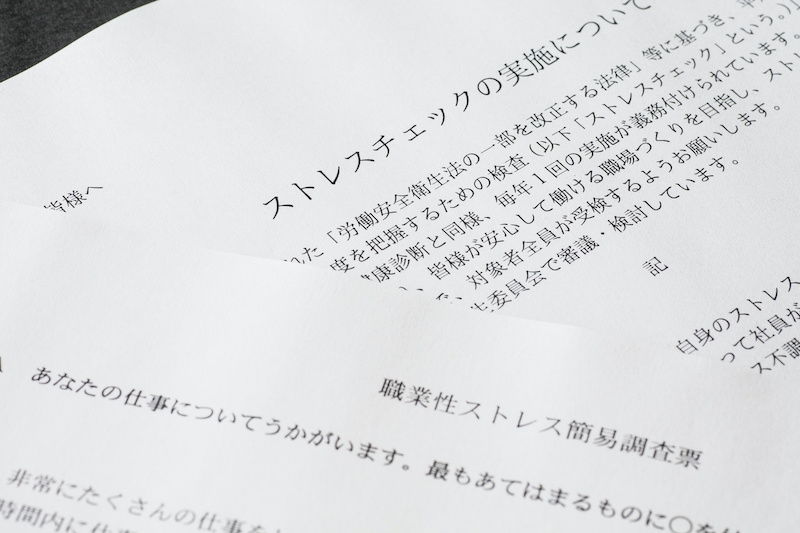 ストレスチェックの実施について
皆様へ
「労働安全衛生法の一部を改正する法律」等に基づき、
度を把握するための検査（以下「ストレスチェック」という。）
康診断と同様、毎年1回の実施が義務付けられています。
皆様が安心して働ける職場づくりを目指し、スト
対象者全員が受検するようお願いします。
委員会で審議・検討しています。
記
自身のストレス
って社員が
ス不調
職業性ストレス簡易調査票
A あなたの仕事についてうかがいます。最もあてはまるものに○を
非常にたくさんの仕事を
時間内に仕事